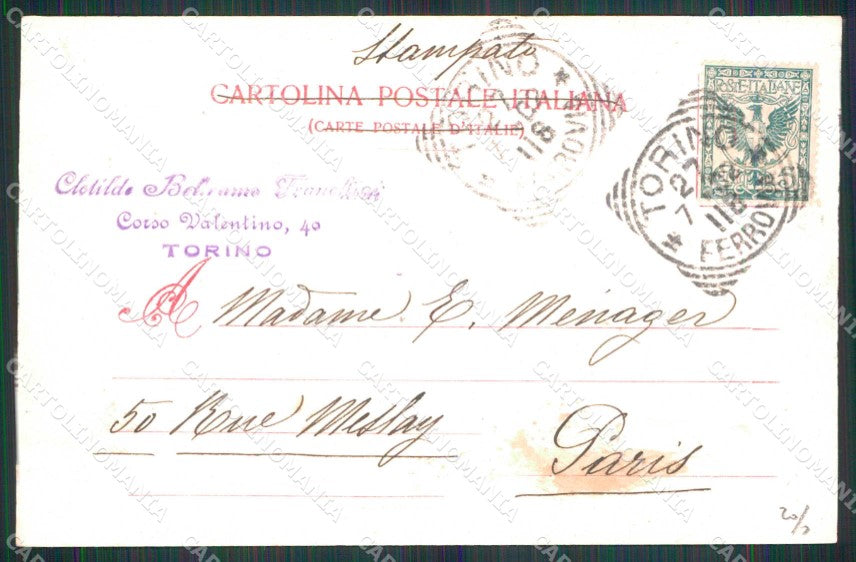 Stampato
CARTOLINA POSTALE ITALIANA
(CARTE POSTALE D'ITALIE)
POSTE ITALIANE
TORINO
FERROVIA
TORINO
27
7
118
FERROVIA
Clotilde
Corso Valentino, 40
TORINO
A Madame E. Menager
50 Rue Meslay
Paris
20/
CARTOLINOMANIA